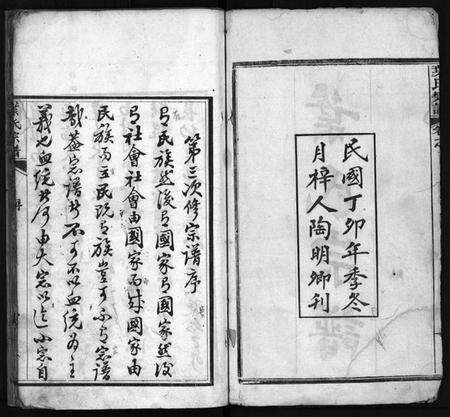 民國丁卯年季冬
月梓人陶明卿刊
第三次修宗譜序
有民族然後有國家有國家然後
有社會社會由國家而成國家由
民族而立民既有族豈可不有宗譜
哉蓋宗譜者不可不以血統為主
義也血統者何由大宗以迄小宗自